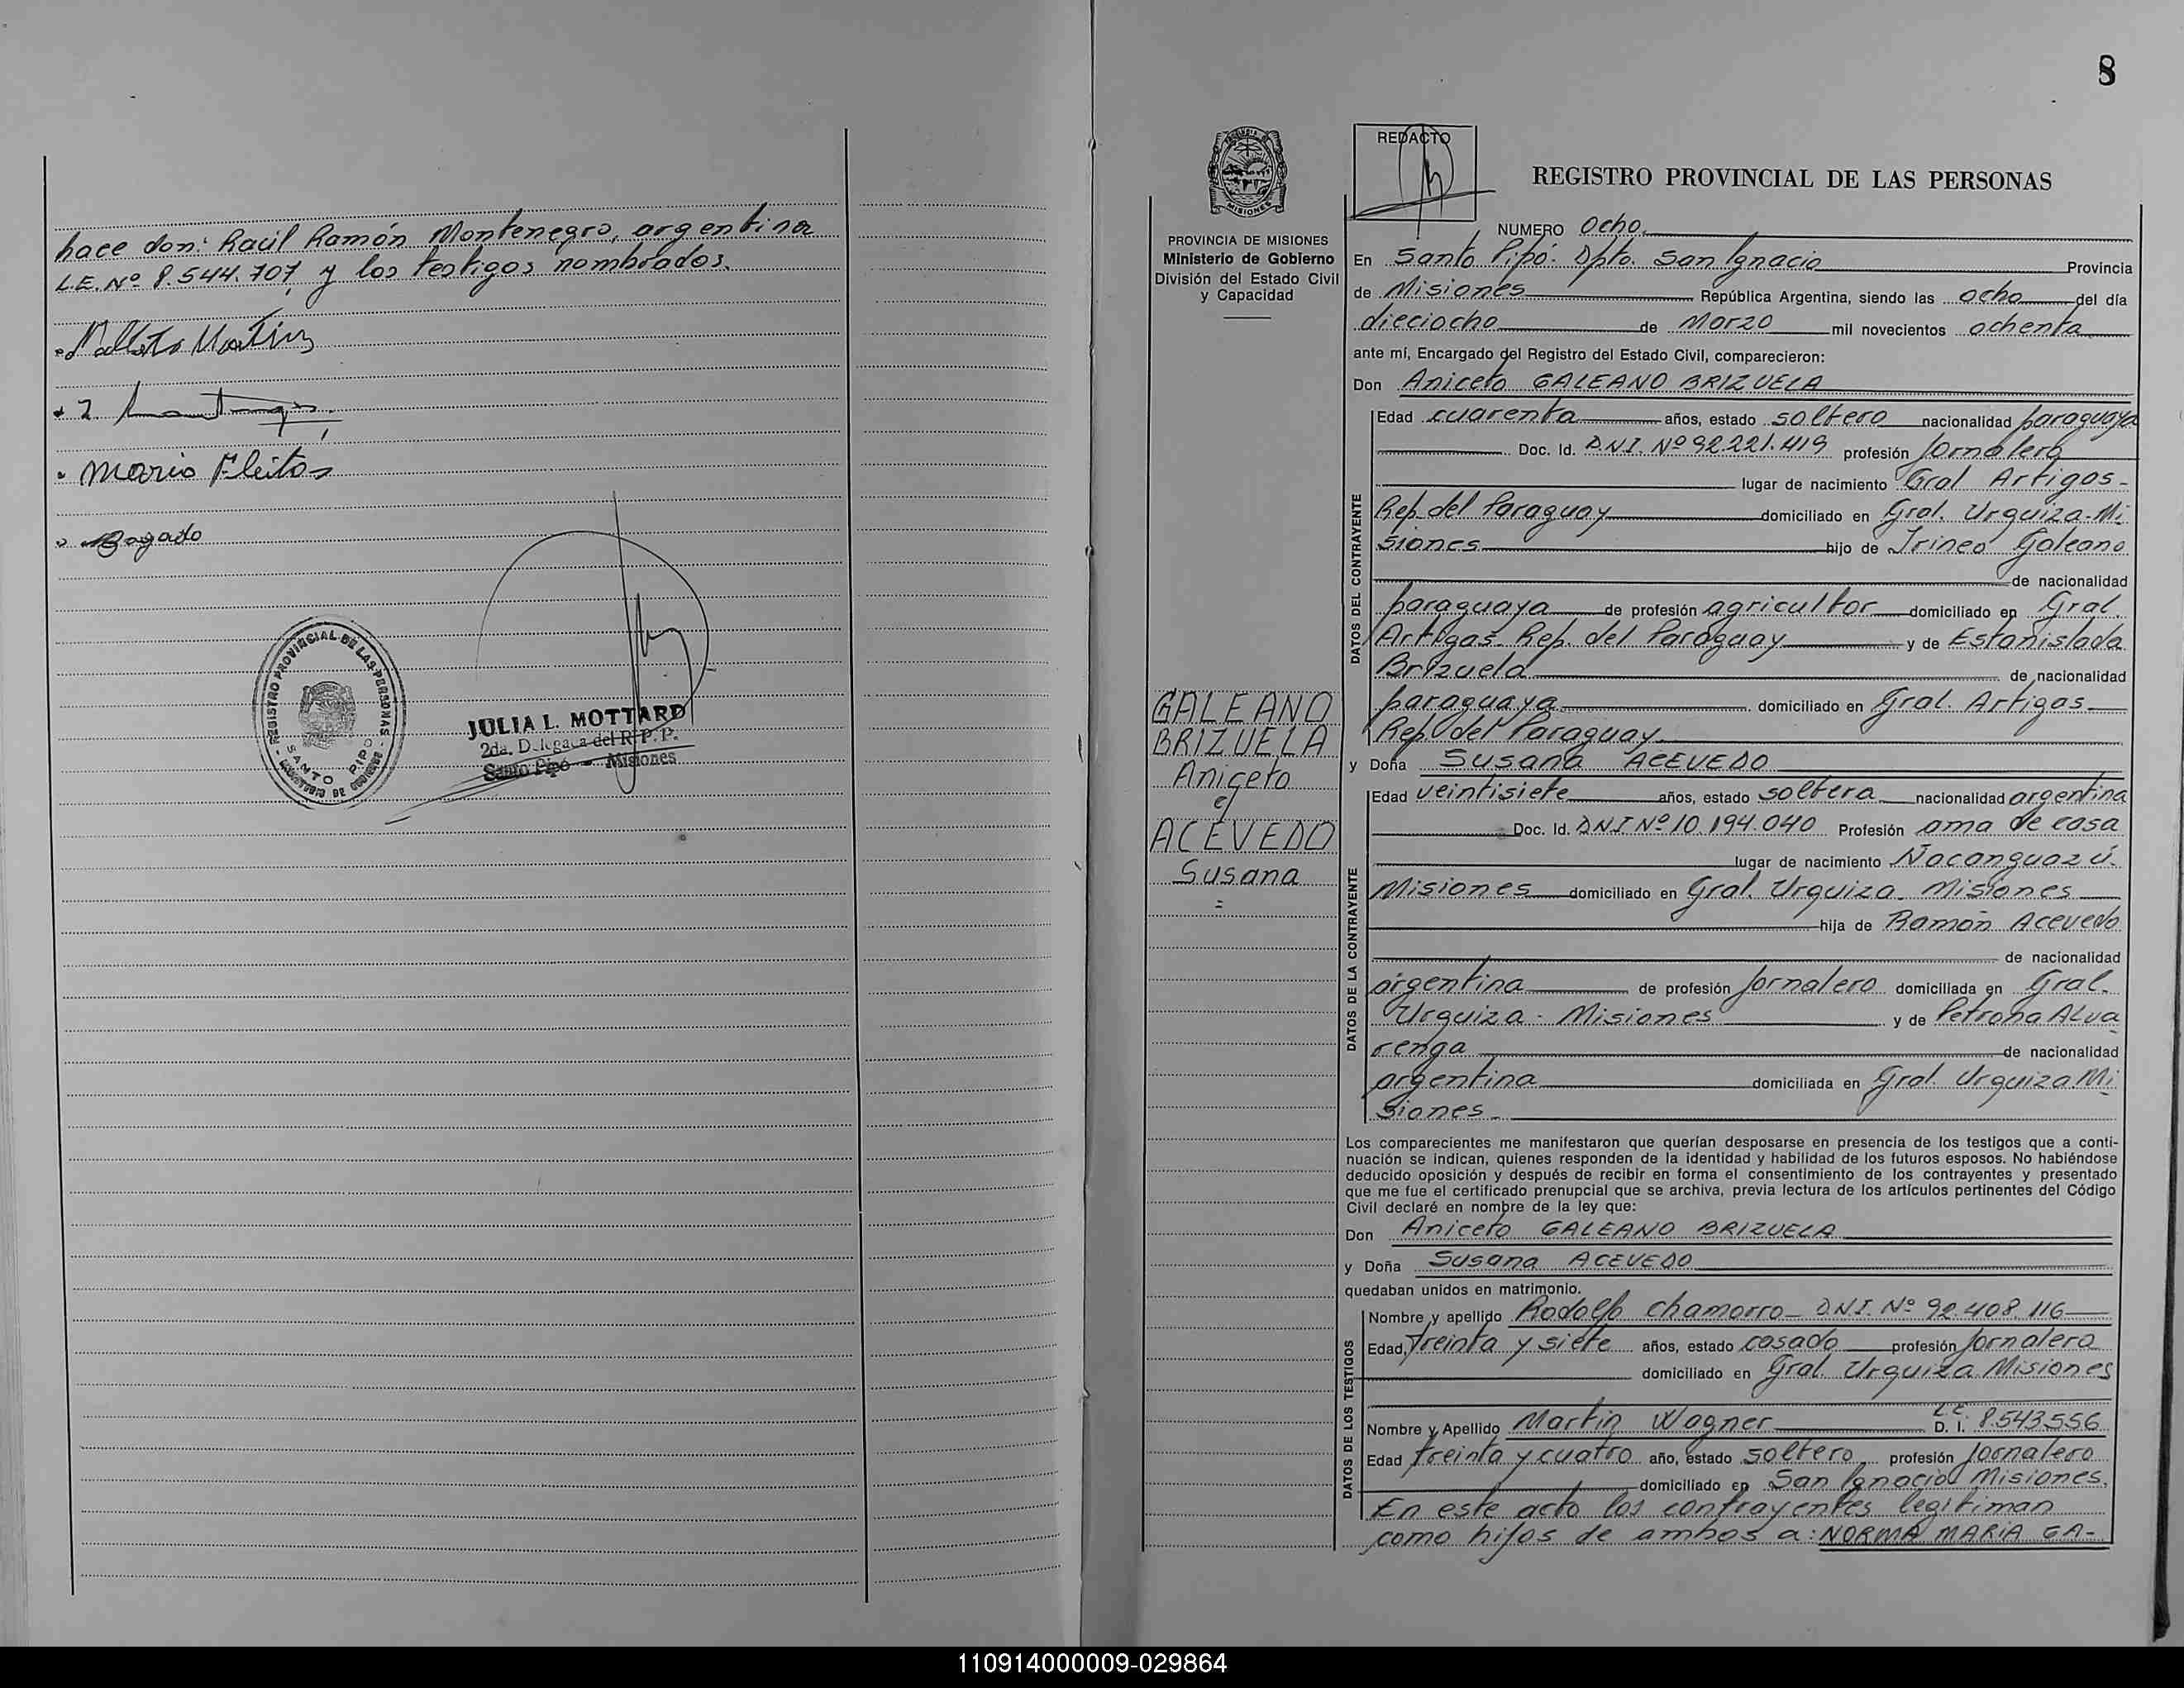 hace don: Raúl Ramón Montenegro, argentina
L.E. Nº 8.544.707, y los testigos nombrados.
Mario Fleitas
Bogado
REGISTRO PROVINCIAL DE LAS PERSONAS
SANTO PIPO
MINISTERIO DE GOBIERNO
JULIA L. MOTTARD
2da. Delegada del R.P.P.
Santo Pipo - Misiones
8
PROVINCIA DE MISIONES
Ministerio de Gobierno
División del Estado Civil
y Capacidad
GALEANO
BRIZUELA
Aniceto
c/
ACEVEDO
Susana
=
MISIONES
REDACTO
REGISTRO PROVINCIAL DE LAS PERSONAS
NUMERO Ocho.
En Santo Pipó. Dpto. San Ignacio Provincia
de Misiones República Argentina, siendo las ocho del día
dieciocho de Marzo mil novecientos ochenta
ante mí, Encargado del Registro del Estado Civil, comparecieron:
Don Aniceto GALEANO BRIZUELA
DATOS DEL CONTRAYENTE
Edad cuarenta años, estado soltero nacionalidad paraguaya
Doc. Id. D.N.I. Nº 92.221.419 profesión Jornalero
lugar de nacimiento Gral Artigas-
Rep. del Paraguay domiciliado en Gral. Urquiza-Mi
siones hijo de Irineo Galeano
de nacionalidad
paraguaya de profesión agricultor domiciliado en Gral.
Artigas Rep. del Paraguay y de Estanislada
Brizuela de nacionalidad
paraguaya domiciliado en Gral. Artigas
Rep. del Paraguay
y Doña Susana ACEVEDO
DATOS DE LA CONTRAYENTE
Edad veintisiete años, estado soltera nacionalidad argentina
Doc. Id. DNI Nº 10.194.040 Profesión ama de casa
lugar de nacimiento Ñacanguazú.
Misiones domiciliado en Gral. Urquiza. Misiones
hija de Ramón Acevedo
de nacionalidad
argentina de profesión Jornalero domiciliada en Gral.
Urquiza - Misiones y de Petrona Alva
renga de nacionalidad
argentina domiciliada en Gral. Urquiza. Mi
siones
Los comparecientes me manifestaron que querían desposarse en presencia de los testigos que a conti-
nuación se indican, quienes responden de la identidad y habilidad de los futuros esposos. No habiéndose
deducido oposición y después de recibir en forma el consentimiento de los contrayentes y presentado
que me fue el certificado prenupcial que se archiva, previa lectura de los artículos pertinentes del Código
Civil declaré en nombre de la ley que:
Don Aniceto GALEANO BRIZUELA
y Doña Susana ACEVEDO
quedaban unidos en matrimonio.
DATOS DE LOS TESTIGOS
Nombre y apellido Rodolfo Chamorro - D.N.I. Nº 92.408.116
Edad, treinta y siete años, estado casado profesión Jornalero
domiciliado en Gral. Urquiza. Misiones
Nombre y Apellido Martin Wagner L.E. D. I. 8.543.556
Edad treinta y cuatro año, estado soltero profesión Jornalero
domiciliado en San Ignacio Misiones.
En este acto los contrayentes legitiman
como hijos de ambos a: NORMA MARIA GA-
110914000009-029864